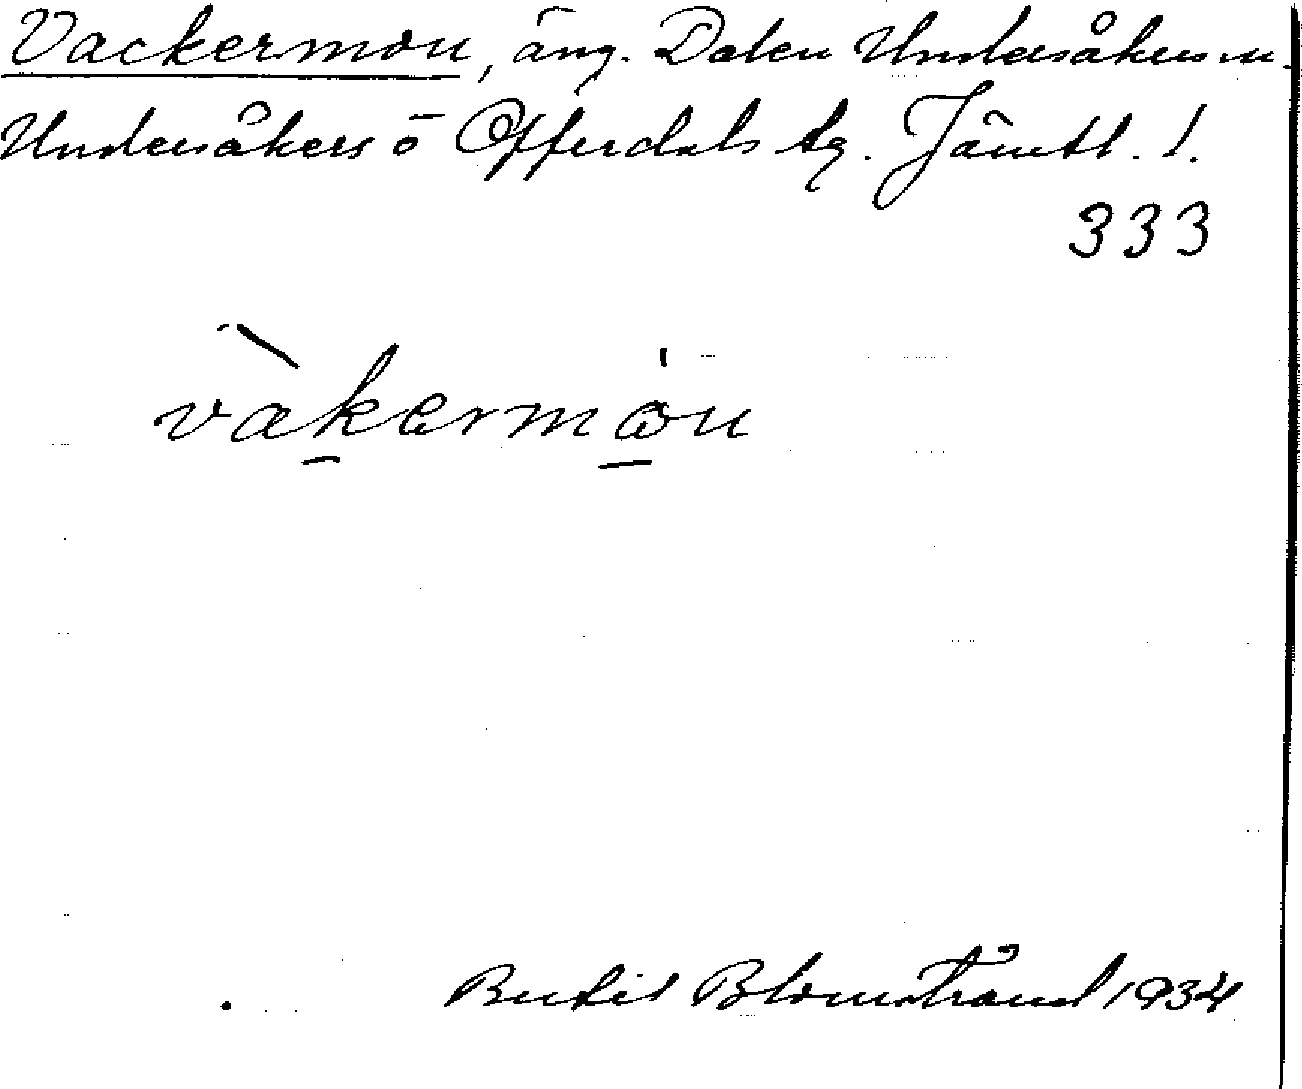 Vackermon, äng. Dalen Undersåkers sn.
Undersåkers o Offerdals tg. Jämtl. l.
333
vàkermòn
Bertil Blomstrand 1934